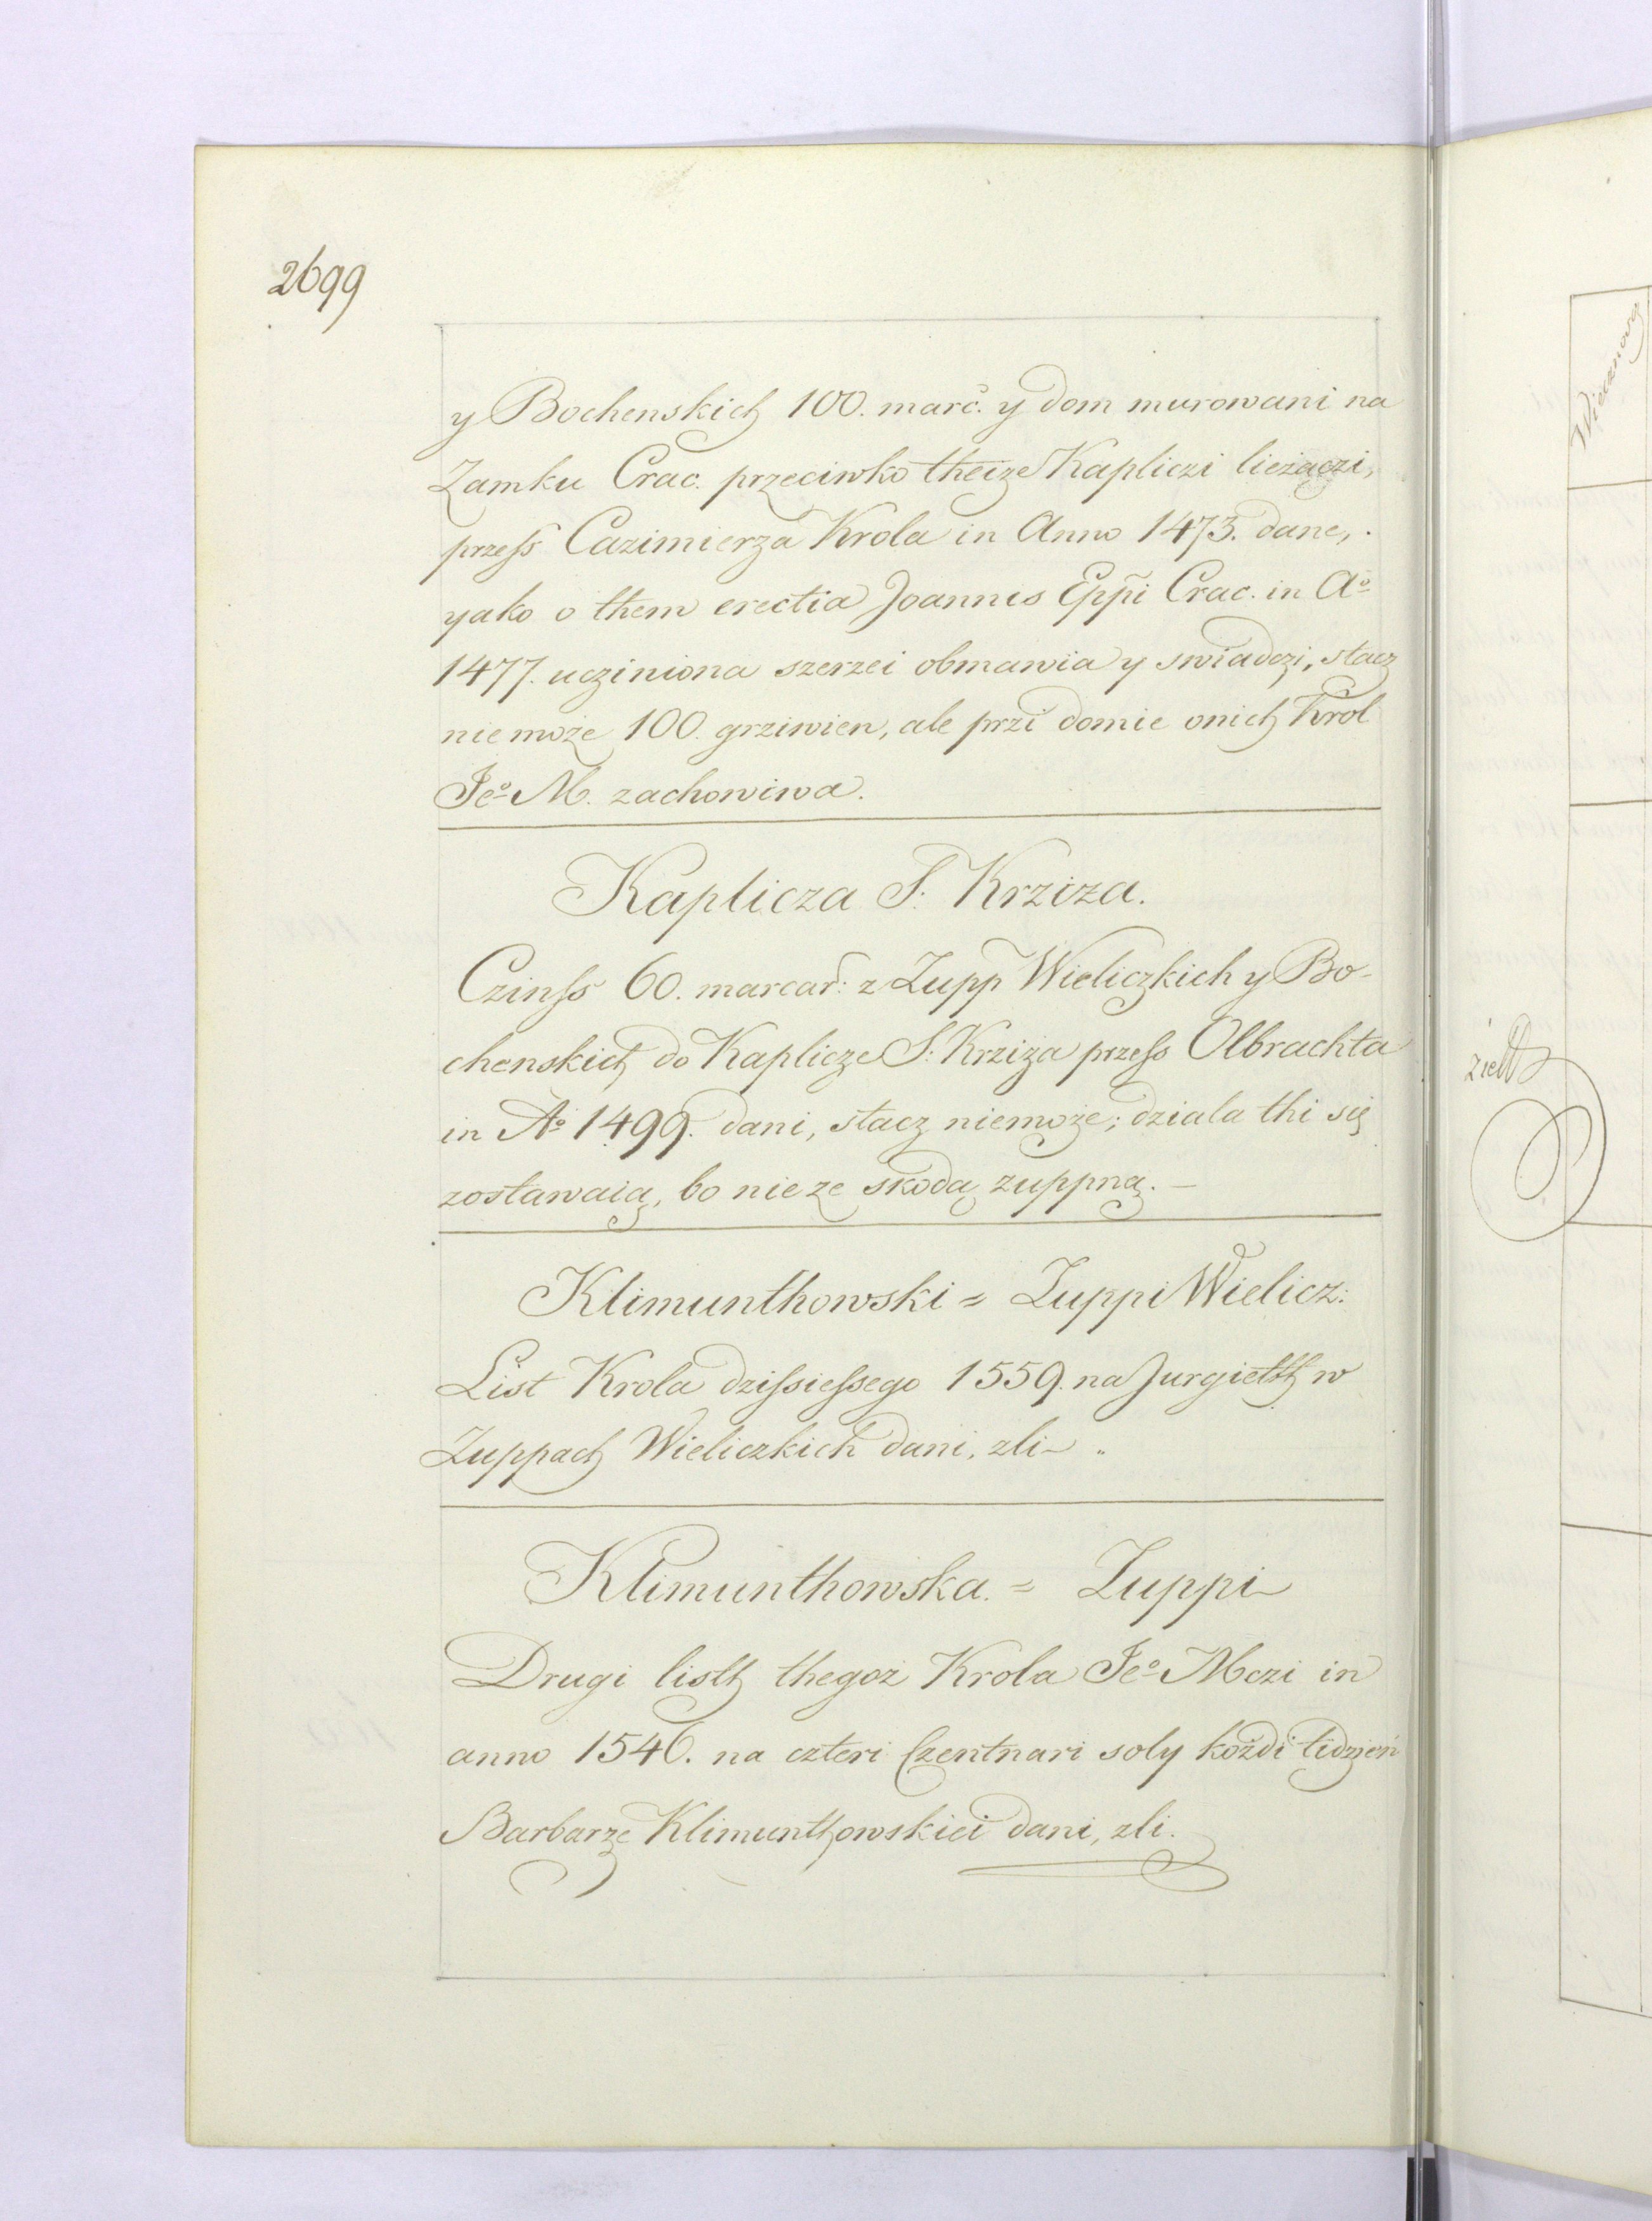 2699
y Bochenskich 100. marc. y dom murowani na
Zamku Crac. przeciwko theize Kapliczi lieżączi,
przeſs Cazimierza Krola in Anno 1473. dane,
yako o them erectia Joannis Eppi Crac. in Aº
1477. ucziniona szerzei obmawia y swiadczi, stacz
nie może 100. grziwien, ale przi domie onich Krol
Jeº M. zachowiwa.
Kaplicza S: Krziza.
Czinſs 60. marcar: z Zupp Wieliczkich y Bo-
chenskich do Kaplicze S: Krziza przeſs Olbrachta
in Aº 1499. dani, stacz niemoże; dziala thi się
zostawaią, bo nie ze skodą zuppną. —
Klimunthowski = Zuppi Wielicz:
List Krola dziſsieſsego 1559. na Jurgielth w
Zuppach Wieliczkich dani, zli
Klimunthowska. = Zuppi
Drugi listh thegoż Krola Jeº Mczi in
anno 1546. na czteri Czentnari soly koždi tidzień
Barbarze Klimunthowskiei dani, zli.
Wiecznowy
zielth